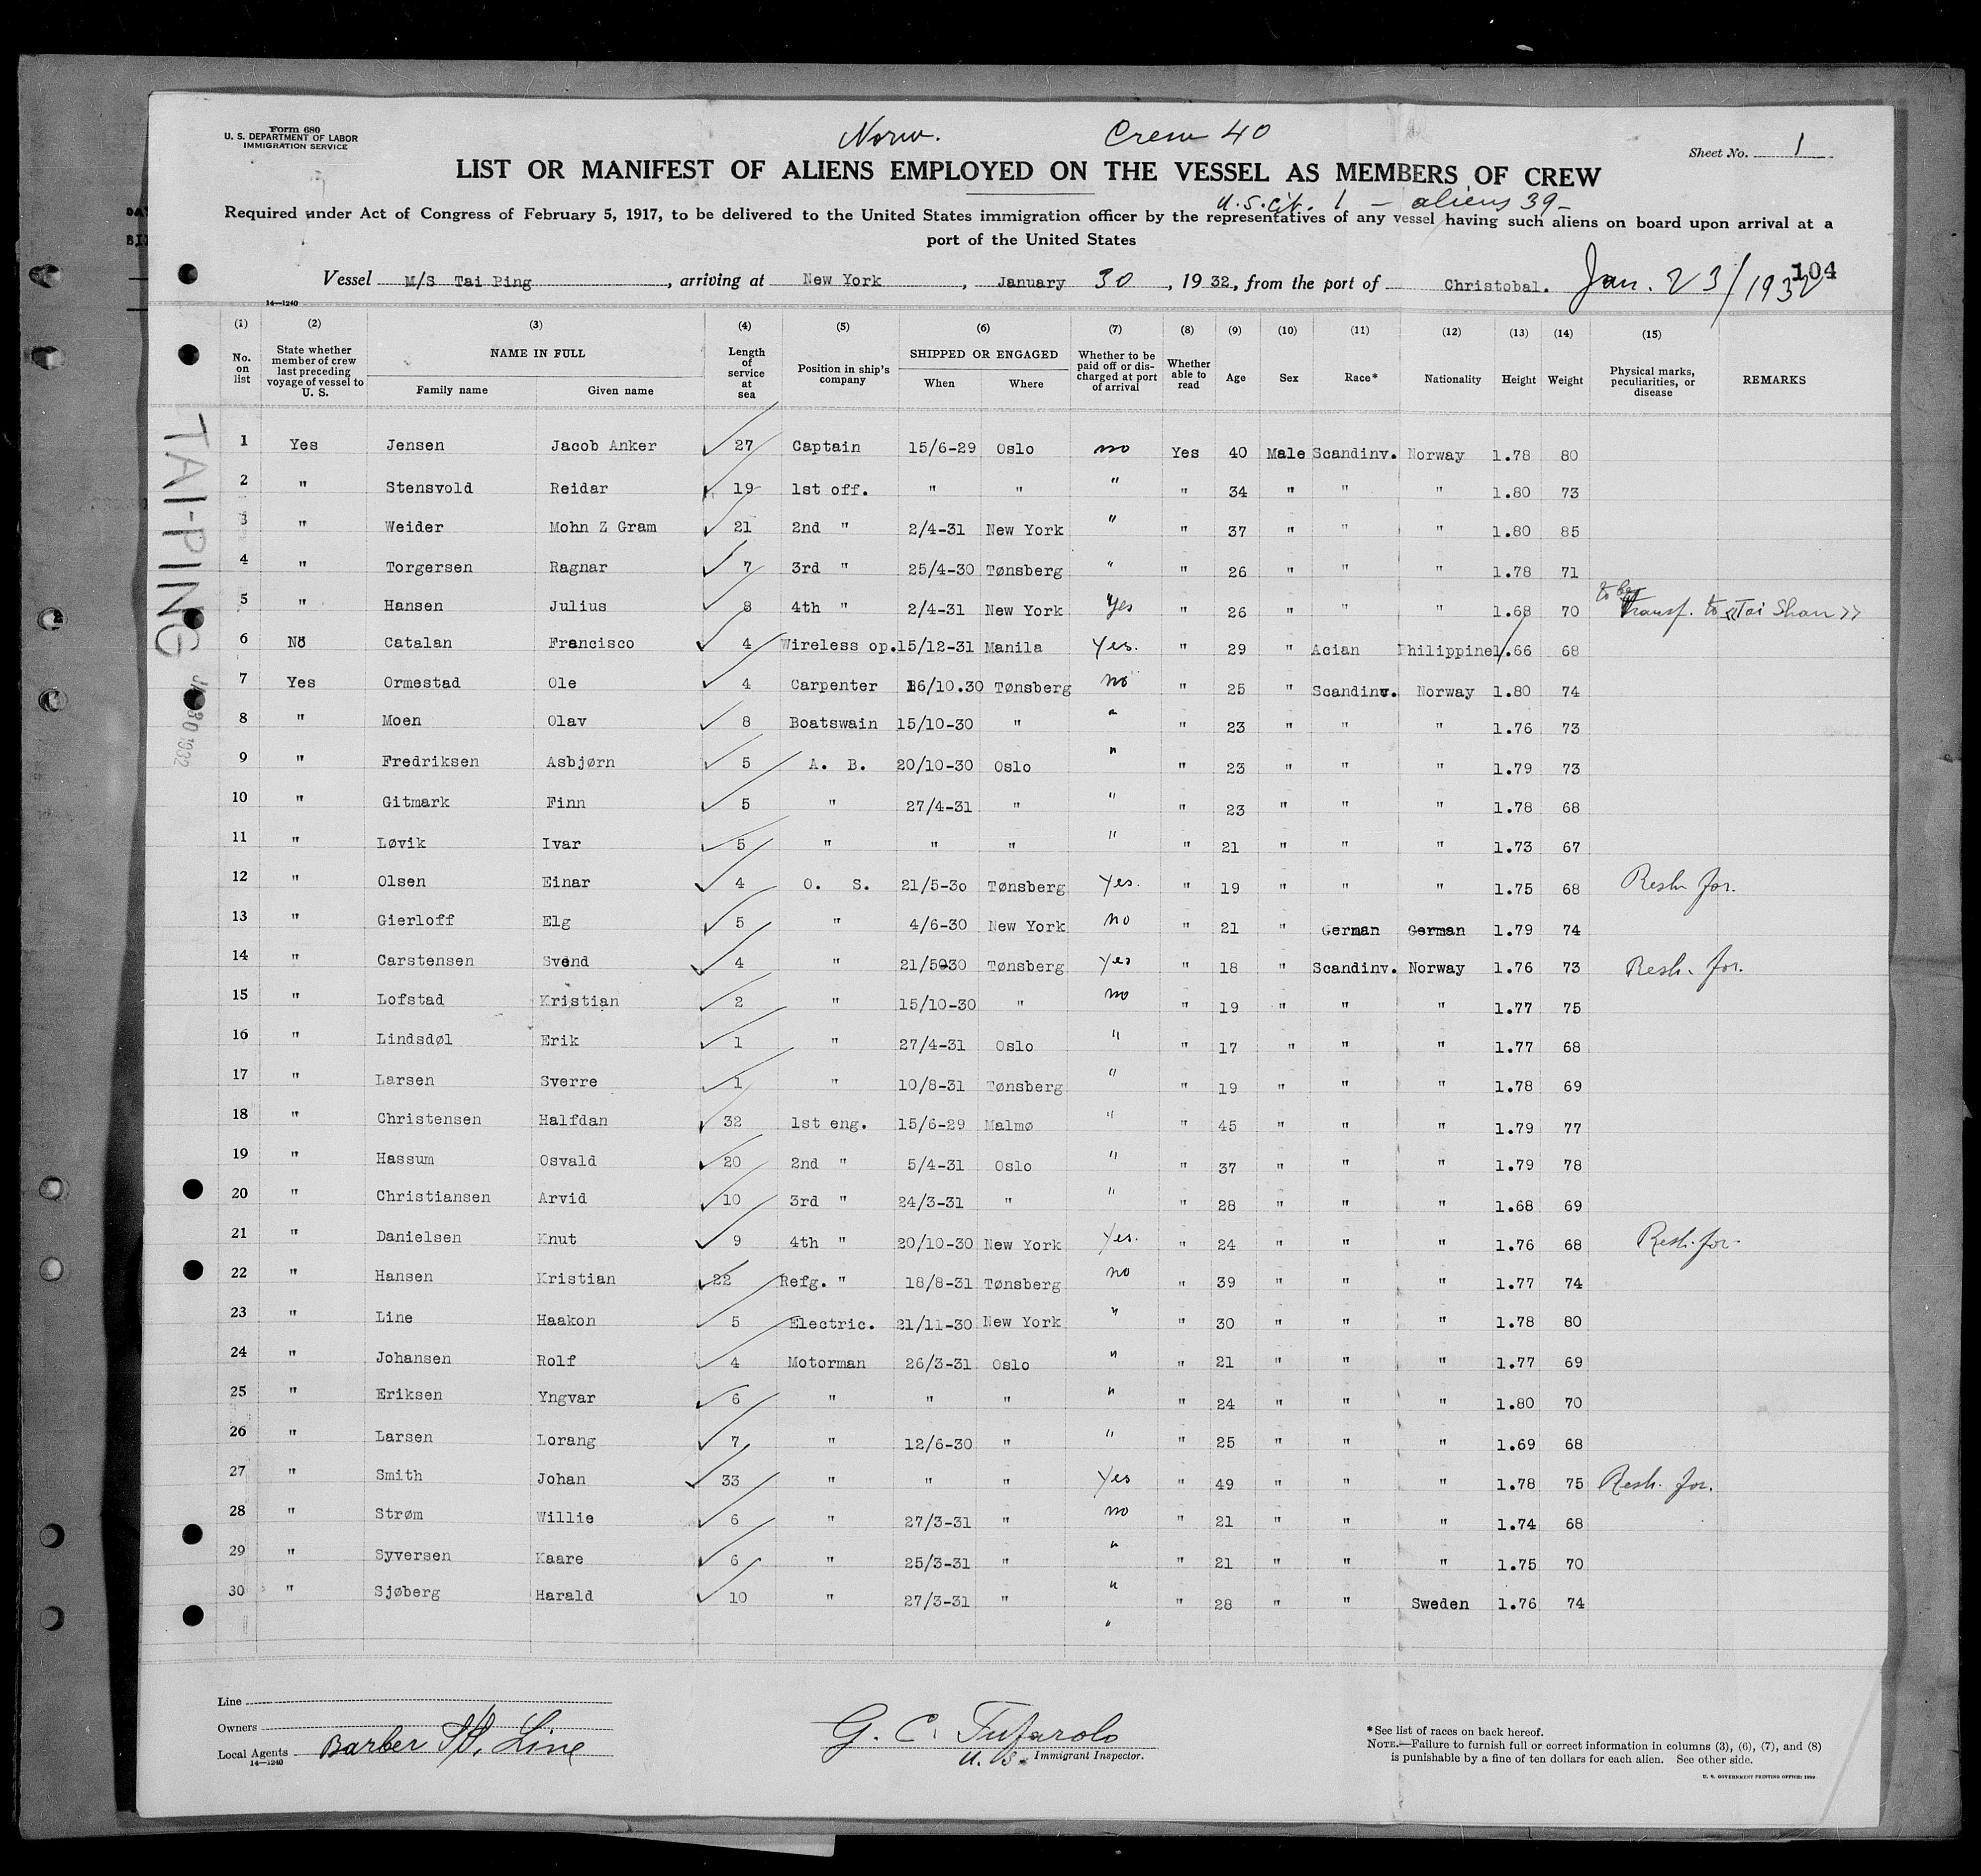 Form 680
U. S. DEPARTMENT OF LABOR
IMMIGRATION SERVICE
Norw. Crew 40
Sheet No. 1
LIST OR MANIFEST OF ALIENS EMPLOYED ON THE VESSEL AS MEMBERS OF CREW
U.S. cit. 1 – aliens 39 –
Required under Act of Congress of February 5, 1917, to be delivered to the United States immigration officer by the representatives of any vessel having such aliens on board upon arrival at a
port of the United States
104
Vessel M/S Tai Ping, arriving at New York, January 30, 1932, from the port of Christobal. Jan. 23/1932
14—1240
(1) (2) (3) (4) (5) (6) (7) (8) (9) (10) (11) (12) (13) (14) (15)
No. on list | State whether member of crew last preceding voyage of vessel to U. S. | NAME IN FULL Family name Given name | Length of service at sea | Position in ship's company | SHIPPED OR ENGAGED When Where | Whether to be paid off or discharged at port of arrival | Whether able to read | Age | Sex | Race* | Nationality | Height | Weight | Physical marks, peculiarities, or disease | REMARKS
1 Yes Jensen Jacob Anker 27 Captain 15/6-29 Oslo no Yes 40 Male Scandinv. Norway 1.78 80
2 " Stensvold Reidar 19 1st off. " " " " 34 " " " 1.80 73
3 " Weider Mohn Z Gram 21 2nd " 2/4-31 New York " " 37 " " " 1.80 85
4 " Torgersen Ragnar 7 3rd " 25/4-30 Tønsberg " " 26 " " " 1.78 71
5 " Hansen Julius 8 4th " 2/4-31 New York Yes " 26 " " " 1.68 70 to be Transf. to «Tai Shan»
6 No Catalan Francisco 4 Wireless op. 15/12-31 Manila Yes. " 29 " Acian Philippine 1.66 68
7 Yes Ormestad Ole 4 Carpenter 16/10.30 Tønsberg no " 25 " Scandinv. Norway 1.80 74
8 " Moen Olav 8 Boatswain 15/10-30 " " " 23 " " " 1.76 73
9 " Fredriksen Asbjørn 5 A. B. 20/10-30 Oslo " " 23 " " " 1.79 73
10 " Gitmark Finn 5 " 27/4-31 " " " 23 " " " 1.78 68
11 " Løvik Ivar 5 " " " " " 21 " " " 1.73 67
12 " Olsen Einar 4 O. S. 21/5-30 Tønsberg Yes. " 19 " " " 1.75 68 Resh. for.
13 " Gierloff Elg 5 " 4/6-30 New York no " 21 " German German 1.79 74
14 " Carstensen Svend 4 " 21/5030 Tønsberg Yes " 18 " Scandinv. Norway 1.76 73 Resh. for.
15 " Lofstad Kristian 2 " 15/10-30 " no " 19 " " " 1.77 75
16 " Lindsdøl Erik 1 " 27/4-31 Oslo " " 17 " " " 1.77 68
17 " Larsen Sverre 1 " 10/8-31 Tønsberg " " 19 " " " 1.78 69
18 " Christensen Halfdan 32 1st eng. 15/6-29 Malmø " " 45 " " " 1.79 77
19 " Hassum Osvald 20 2nd " 5/4-31 Oslo " " 37 " " " 1.79 78
20 " Christiansen Arvid 10 3rd " 24/3-31 " " " 28 " " " 1.68 69
21 " Danielsen Knut 9 4th " 20/10-30 New York Yes. " 24 " " " 1.76 68 Resh. for.
22 " Hansen Kristian 22 Refg. " 18/8-31 Tønsberg no " 39 " " " 1.77 74
23 " Line Haakon 5 Electric. 21/11-30 New York " " 30 " " " 1.78 80
24 " Johansen Rolf 4 Motorman 26/3-31 Oslo " " 21 " " " 1.77 69
25 " Eriksen Yngvar 6 " " " " " 24 " " " 1.80 70
26 " Larsen Lorang 7 " 12/6-30 " " " 25 " " " 1.69 68
27 " Smith Johan 33 " " " Yes " 49 " " " 1.78 75 Resh. for.
28 " Strøm Willie 6 " 27/3-31 " no " 21 " " " 1.74 68
29 " Syversen Kaare 6 " 25/3-31 " " " 21 " " " 1.75 70
30 " Sjøberg Harald 10 " 27/3-31 " " " 28 " " Sweden 1.76 74
"
TAI-PING
JAN 30 1932
Line
Owners
Local Agents Barber S/S. Line
14—1240
G. C. Tufarolo
U. S. Immigrant Inspector.
*See list of races on back hereof.
NOTE.—Failure to furnish full or correct information in columns (3), (6), (7), and (8)
is punishable by a fine of ten dollars for each alien. See other side.